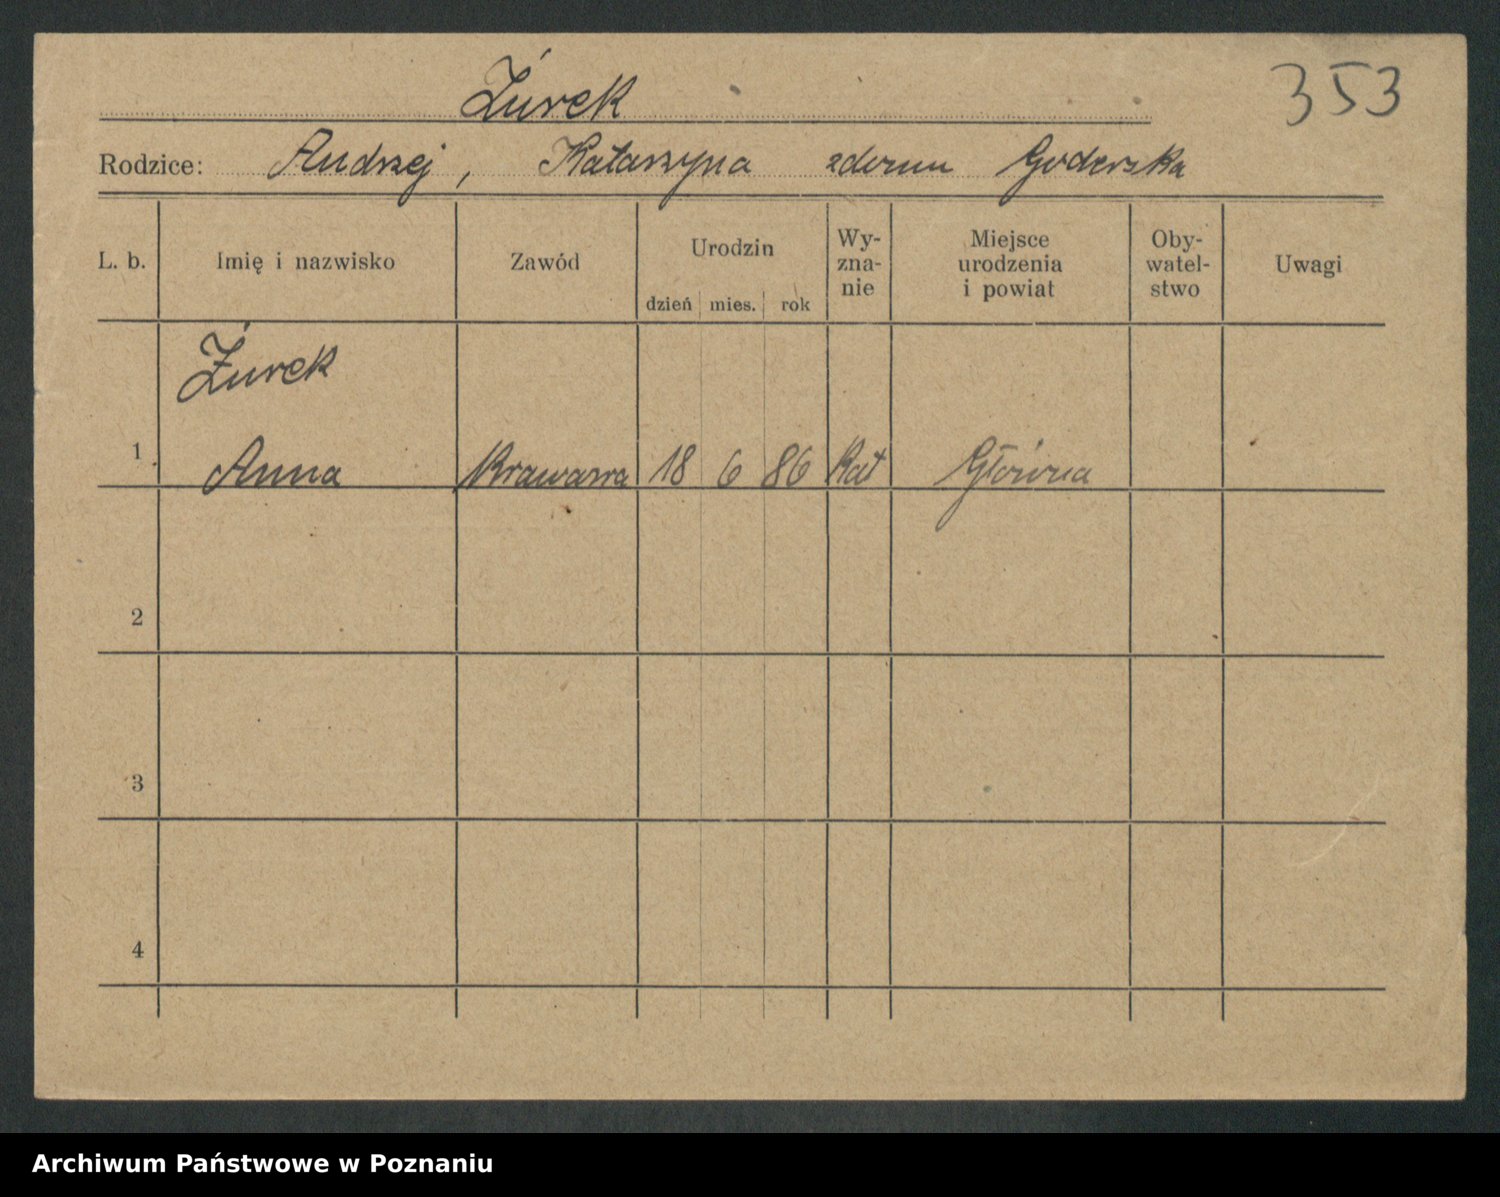 353
Żurek
Rodzice: Andrzej, Katarzyna zdomu Goderska
L. b. Imię i nazwisko Zawód Urodzin dzień mies. rok Wy-zna-nie Miejsce urodzenia i powiat Oby-watel-stwo Uwagi
Żurek
1 Anna Krawcowa 18 6 86 Kat Główna
2
3
4
Archiwum Państwowe w Poznaniu